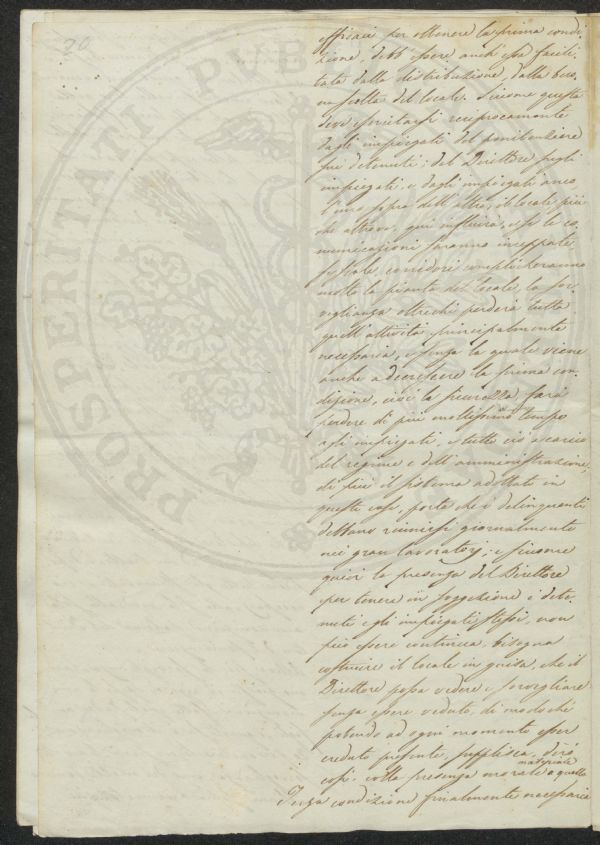 70
efficaci per ottenere la prima condi-
zione, debb'essere anch'essa facili-
tata dalla distribuzione, dalla buo-
na scelta del locale. Siccome questa
deve esercitarsi reciprocamente
dagli impiegati del penitenziere
sui detenuti; dal Direttore sugli
impiegati, e dagli impiegati anco
l'uno sopra dell'altro, il locale più
che altrove, qui influirà, e se le co-
municazioni saranno inceppate,
se scale, corridori complicheranno
molto la pianta del locale, la sor-
veglianza oltreché perderà tutta
quell'attività principalmente
necessaria, e senza la quale viene
anche a decrescere la prima con-
dizione, cioè la sicurezza, farà
perdere di più moltissimo tempo
agli impiegati, e tutto ciò a carico
del regime e dell'amministrazione;
di più il sistema adottato in
questi casi, porta che i delinquenti
debbano riunirsi giornalmente
nei gran lavoratorj; e siccome
quivi la presenza del Direttore
per tenere in soggezione i dete-
nuti e gli impiegati stessi, non
può essere continua, bisogna
costruire il locale in guisa, che il
Direttore possa vedere e sorvegliare
senza essere veduto, di modo chè
potendo ad ogni momento esser
creduto presente, supplisca, dirò
così, colla presenza morale a quella materiale
Terza condizione finalmente necessaria
PROSPERITATI PUB